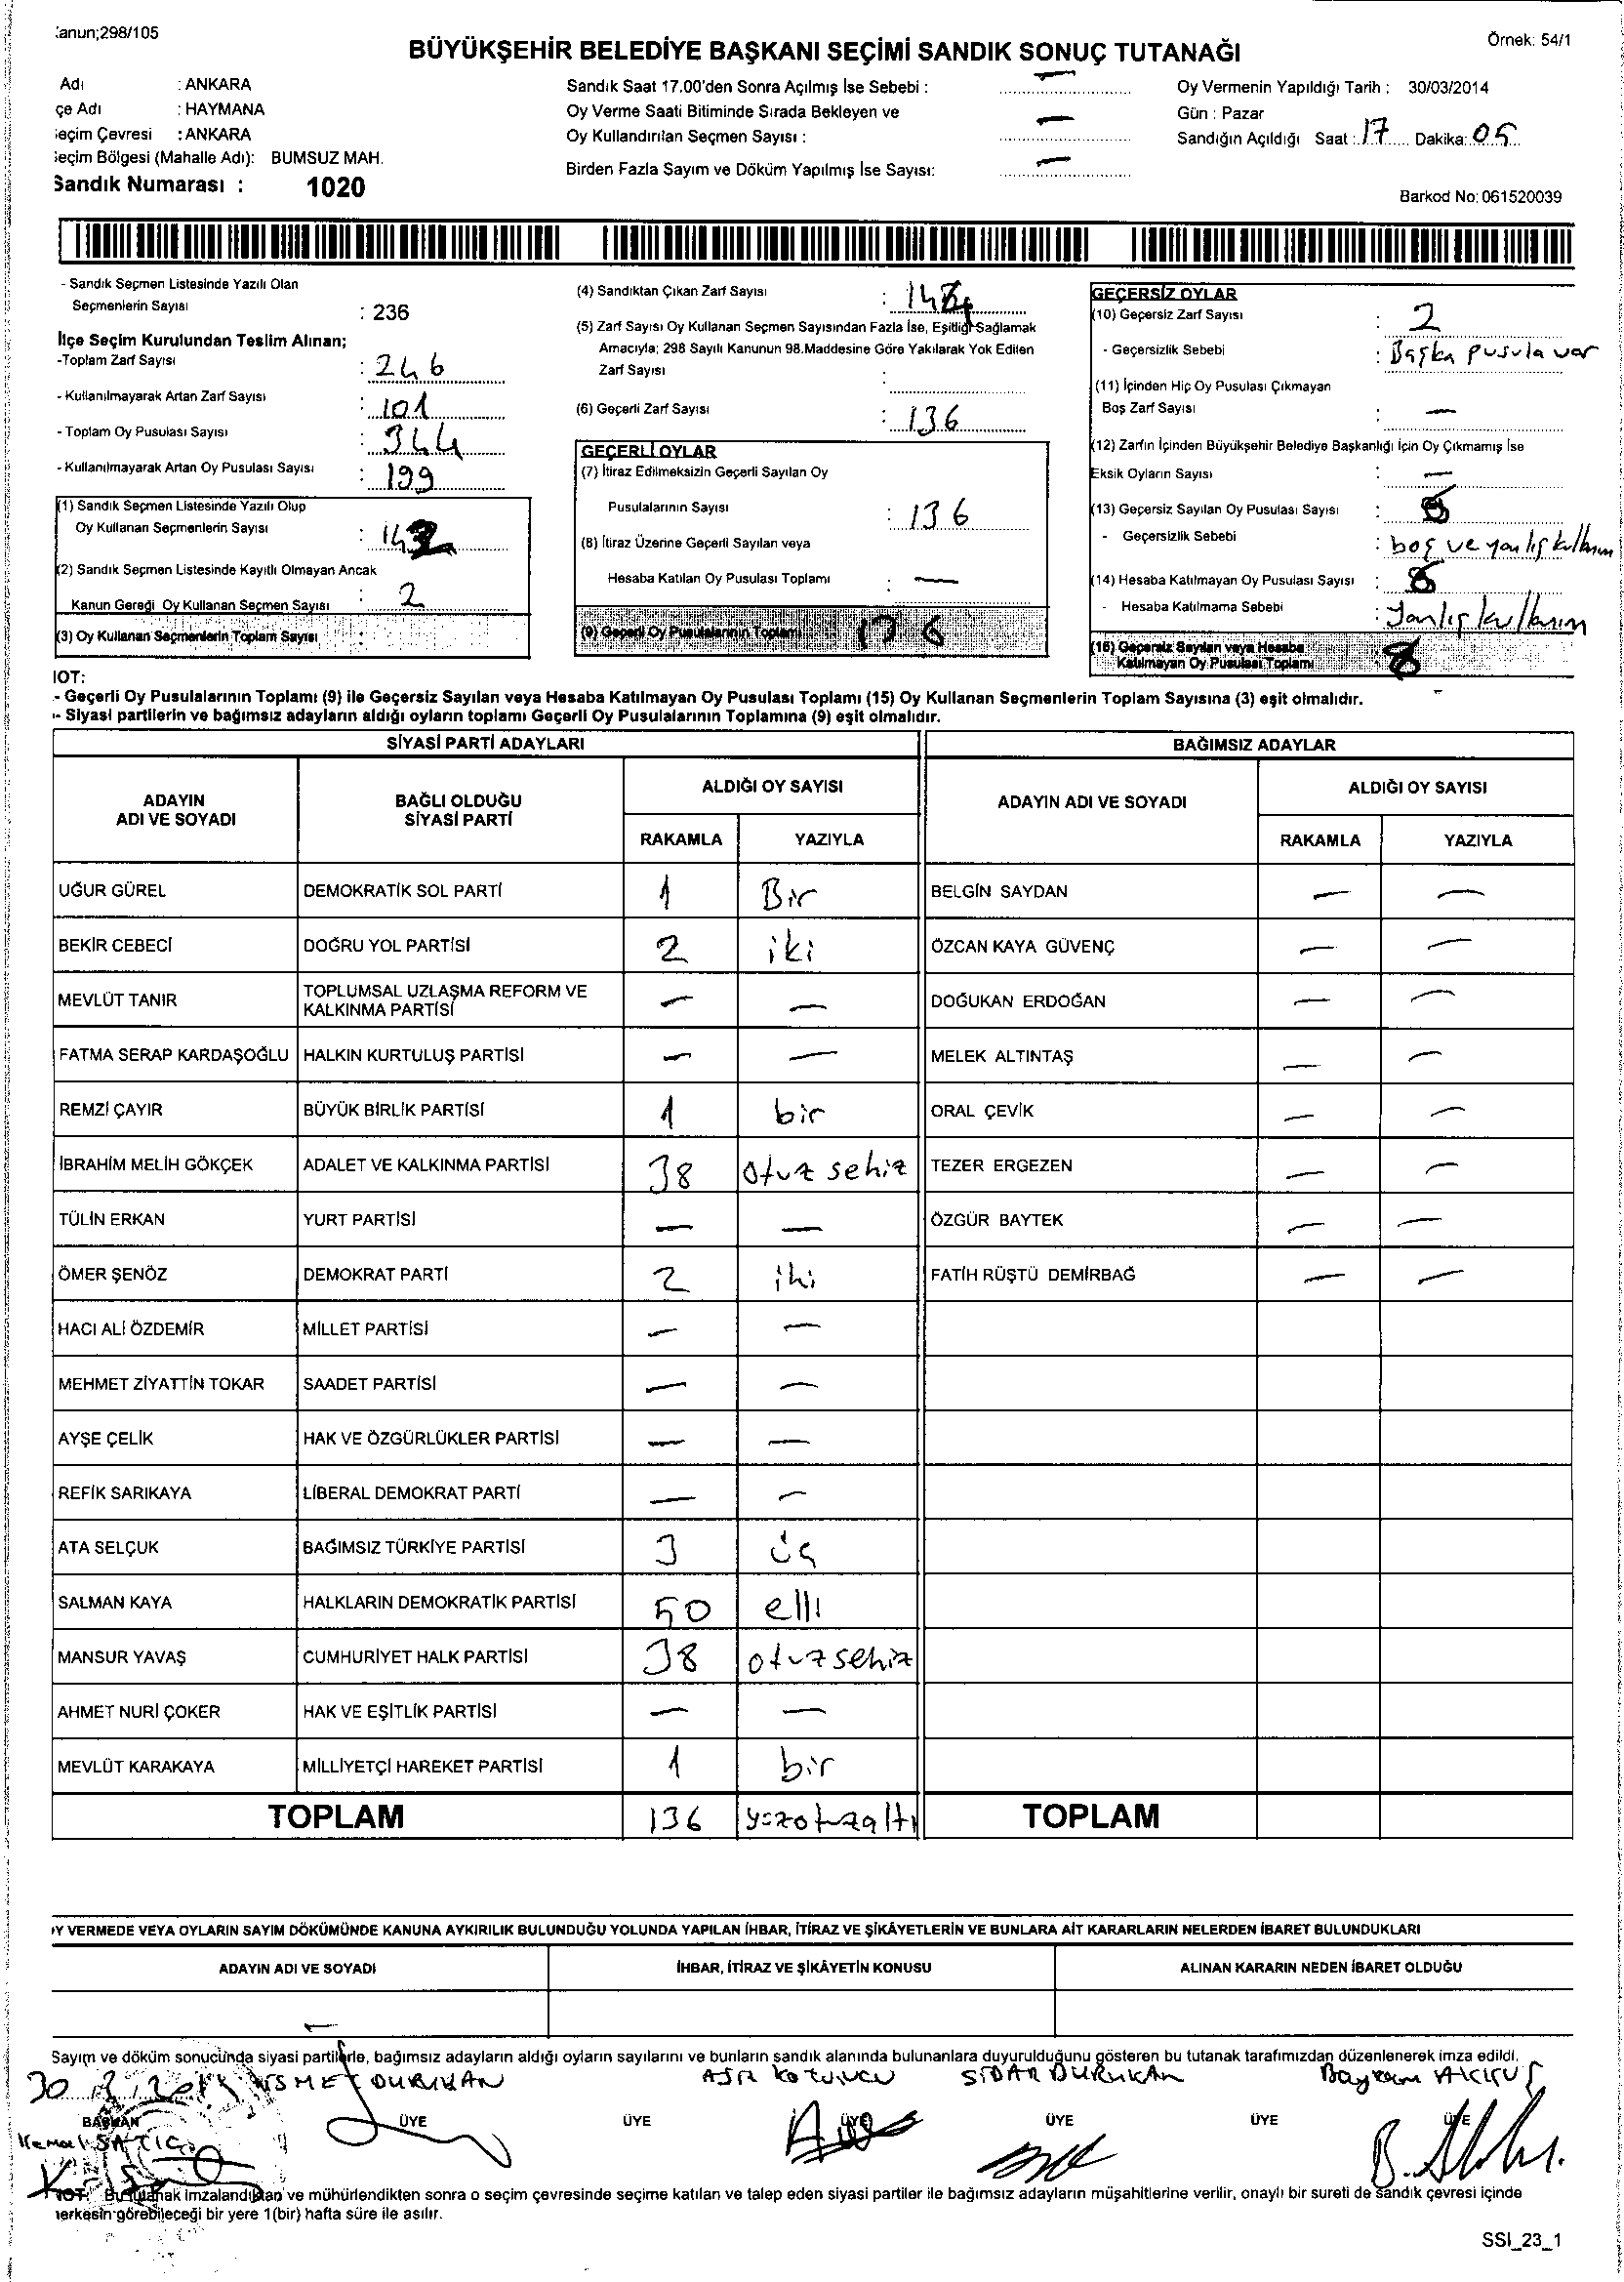 anun;298/105
Örnek: 54/1
BÜYÜKŞEHİR BELEDİYE BAŞKANI SEÇİMİ SANDIK SONUÇ TUTANAĞI
Adı : ANKARA
çe Adı : HAYMANA
eçim Çevresi : ANKARA
eçim Bölgesi (Mahalle Adı): BUMSUZ MAH.
Sandık Numarası : 1020
Sandık Saat 17.00'den Sonra Açılmış İse Sebebi : —
Oy Verme Saati Bitiminde Sırada Bekleyen ve
Oy Kullandırılan Seçmen Sayısı : —
Birden Fazla Sayım ve Döküm Yapılmış İse Sayısı: —
Oy Vermenin Yapıldığı Tarih : 30/03/2014
Gün : Pazar
Sandığın Açıldığı Saat : 17 Dakika: 05
Barkod No: 061520039
- Sandık Seçmen Listesinde Yazılı Olan
Seçmenlerin Sayısı : 236
İlçe Seçim Kurulundan Teslim Alınan;
-Toplam Zarf Sayısı : 246
- Kullanılmayarak Artan Zarf Sayısı : 101
- Toplam Oy Pusulası Sayısı : 344
- Kullanılmayarak Artan Oy Pusulası Sayısı : 199
(1) Sandık Seçmen Listesinde Yazılı Olup
Oy Kullanan Seçmenlerin Sayısı : 142
(2) Sandık Seçmen Listesinde Kayıtlı Olmayan Ancak
Kanun Gereği Oy Kullanan Seçmen Sayısı : 2
(3) Oy Kullanan Seçmenlerin Toplam Sayısı :
(4) Sandıktan Çıkan Zarf Sayısı : 144
(5) Zarf Sayısı Oy Kullanan Seçmen Sayısından Fazla İse, Eşitliği Sağlamak
Amacıyla; 298 Sayılı Kanunun 98.Maddesine Göre Yakılarak Yok Edilen
Zarf Sayısı :
(6) Geçerli Zarf Sayısı : 136
GEÇERLİ OYLAR
(7) İtiraz Edilmeksizin Geçerli Sayılan Oy
Pusulalarının Sayısı : 136
(8) İtiraz Üzerine Geçerli Sayılan veya
Hesaba Katılan Oy Pusulası Toplamı : —
(9) Geçerli Oy Pusulalarının Toplamı 136
GEÇERSİZ OYLAR
(10) Geçersiz Zarf Sayısı : 2
- Geçersizlik Sebebi : Başka pusula var
(11) İçinden Hiç Oy Pusulası Çıkmayan
Boş Zarf Sayısı : —
(12) Zarfın İçinden Büyükşehir Belediye Başkanlığı İçin Oy Çıkmamış İse
Eksik Oyların Sayısı : —
(13) Geçersiz Sayılan Oy Pusulası Sayısı :
- Geçersizlik Sebebi : boş ve yanlış kullanım
(14) Hesaba Katılmayan Oy Pusulası Sayısı : 8
- Hesaba Katılmama Sebebi : Yanlış kullanım
(15) Geçersiz Sayılan veya Hesaba
Katılmayan Oy Pusulası Toplamı 8
IOT:
- Geçerli Oy Pusulalarının Toplamı (9) ile Geçersiz Sayılan veya Hesaba Katılmayan Oy Pusulası Toplamı (15) Oy Kullanan Seçmenlerin Toplam Sayısına (3) eşit olmalıdır.
- Siyasi partilerin ve bağımsız adayların aldığı oyların toplamı Geçerli Oy Pusulalarının Toplamına (9) eşit olmalıdır.
SİYASİ PARTİ ADAYLARI BAĞIMSIZ ADAYLAR
ADAYIN ADI VE SOYADI BAĞLI OLDUĞU SİYASİ PARTİ ALDIĞI OY SAYISI ADAYIN ADI VE SOYADI ALDIĞI OY SAYISI
RAKAMLA YAZIYLA RAKAMLA YAZIYLA
UĞUR GÜREL DEMOKRATİK SOL PARTİ 1 Bir BELGİN SAYDAN — —
BEKİR CEBECİ DOĞRU YOL PARTİSİ 2 iki ÖZCAN KAYA GÜVENÇ — —
MEVLÜT TANIR TOPLUMSAL UZLAŞMA REFORM VE KALKINMA PARTİSİ — — DOĞUKAN ERDOĞAN — —
FATMA SERAP KARDAŞOĞLU HALKIN KURTULUŞ PARTİSİ — — MELEK ALTINTAŞ — —
REMZİ ÇAYIR BÜYÜK BİRLİK PARTİSİ 1 bir ORAL ÇEVİK — —
İBRAHİM MELİH GÖKÇEK ADALET VE KALKINMA PARTİSİ 38 otuz sekiz TEZER ERGEZEN — —
TÜLİN ERKAN YURT PARTİSİ — — ÖZGÜR BAYTEK — —
ÖMER ŞENÖZ DEMOKRAT PARTİ 2 iki FATİH RÜŞTÜ DEMİRBAĞ — —
HACI ALİ ÖZDEMİR MİLLET PARTİSİ — —
MEHMET ZİYATTİN TOKAR SAADET PARTİSİ — —
AYŞE ÇELİK HAK VE ÖZGÜRLÜKLER PARTİSİ — —
REFİK SARIKAYA LİBERAL DEMOKRAT PARTİ — —
ATA SELÇUK BAĞIMSIZ TÜRKİYE PARTİSİ 3 üç
SALMAN KAYA HALKLARIN DEMOKRATİK PARTİSİ 50 elli
MANSUR YAVAŞ CUMHURİYET HALK PARTİSİ 38 otuz sekiz
AHMET NURİ ÇOKER HAK VE EŞİTLİK PARTİSİ — —
MEVLÜT KARAKAYA MİLLİYETÇİ HAREKET PARTİSİ 1 bir
TOPLAM 136 yüzotuzaltı TOPLAM
Y VERMEDE VEYA OYLARIN SAYIM DÖKÜMÜNDE KANUNA AYKIRILIK BULUNDUĞU YOLUNDA YAPILAN İHBAR, İTİRAZ VE ŞİKÂYETLERİN VE BUNLARA AİT KARARLARIN NELERDEN İBARET BULUNDUKLARI
ADAYIN ADI VE SOYADI İHBAR, İTİRAZ VE ŞİKÂYETİN KONUSU ALINAN KARARIN NEDEN İBARET OLDUĞU
—
Sayım ve döküm sonucunda siyasi partilerle, bağımsız adayların aldığı oyların sayılarını ve bunların sandık alanında bulunanlara duyurulduğunu gösteren bu tutanak tarafımızdan düzenlenerek imza edildi.
30 3 2014 İSMET DURUKAN SİDAR DURUKAN Bayram AKKUŞ
BAŞKAN ÜYE ÜYE ÜYE ÜYE ÜYE ÜYE
Kemal SATICI
NOT: Bu tutanak imzalandıktan ve mühürlendikten sonra o seçim çevresinde seçime katılan ve talep eden siyasi partiler ile bağımsız adayların müşahitlerine verilir, onaylı bir sureti de sandık çevresi içinde
erkesin görebileceği bir yere 1(bir) hafta süre ile asılır.
SSI_23_1